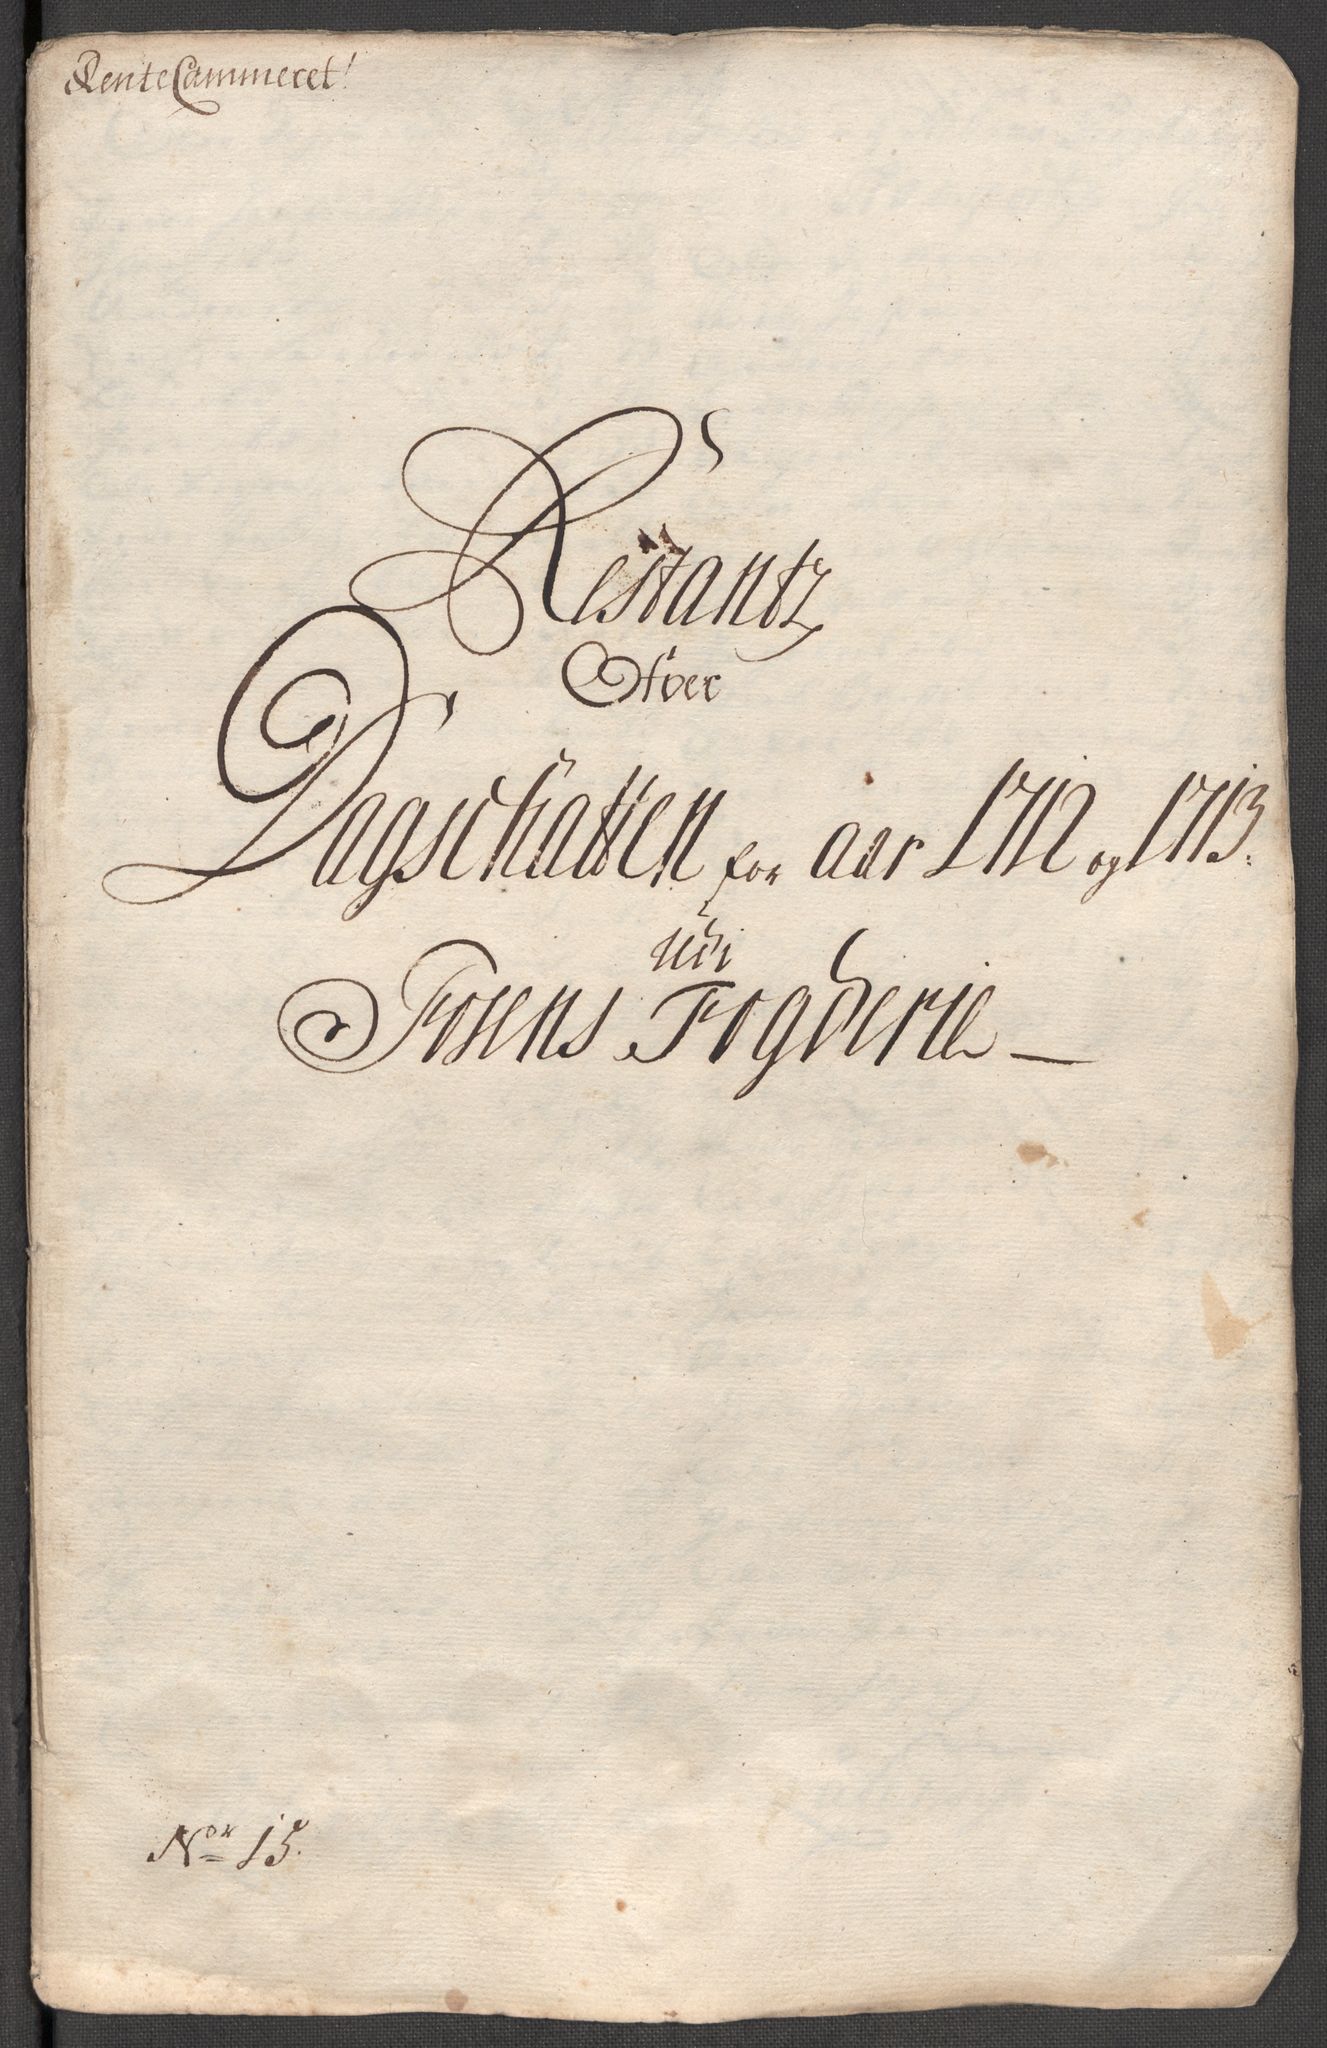 RenteCammeret!
Restantz
Ofver
Dagschatten for aar 1712 og 1713.
udi
Fosens Fogderie
Nor 15.